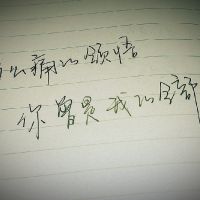 么痛的领悟
你曾是我的全部